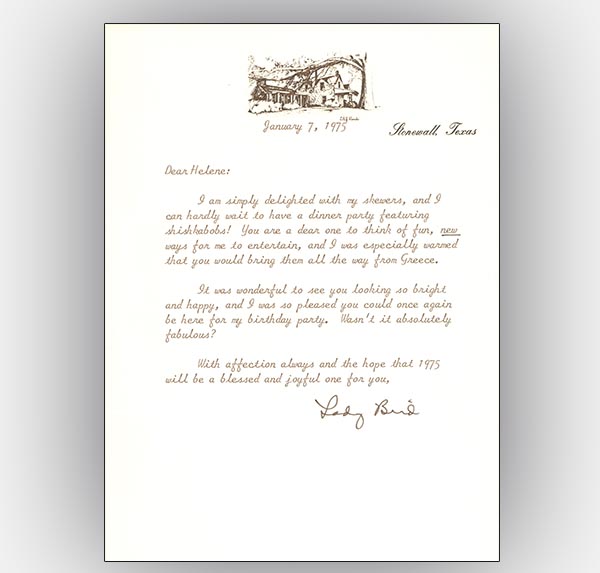 January 7, 1975
Stonewall, Texas
Dear Helene:
I am simply delighted with my skewers, and I
can hardly wait to have a dinner party featuring
shishkabobs! You are a dear one to think of fun, new
ways for me to entertain, and I was especially warmed
that you would bring them all the way from Greece.
It was wonderful to see you looking so bright
and happy, and I was so pleased you could once again
be here for my birthday party. Wasn't it absolutely
fabulous?
With affection always and the hope that 1975
will be a blessed and joyful one for you,
Lady Bird